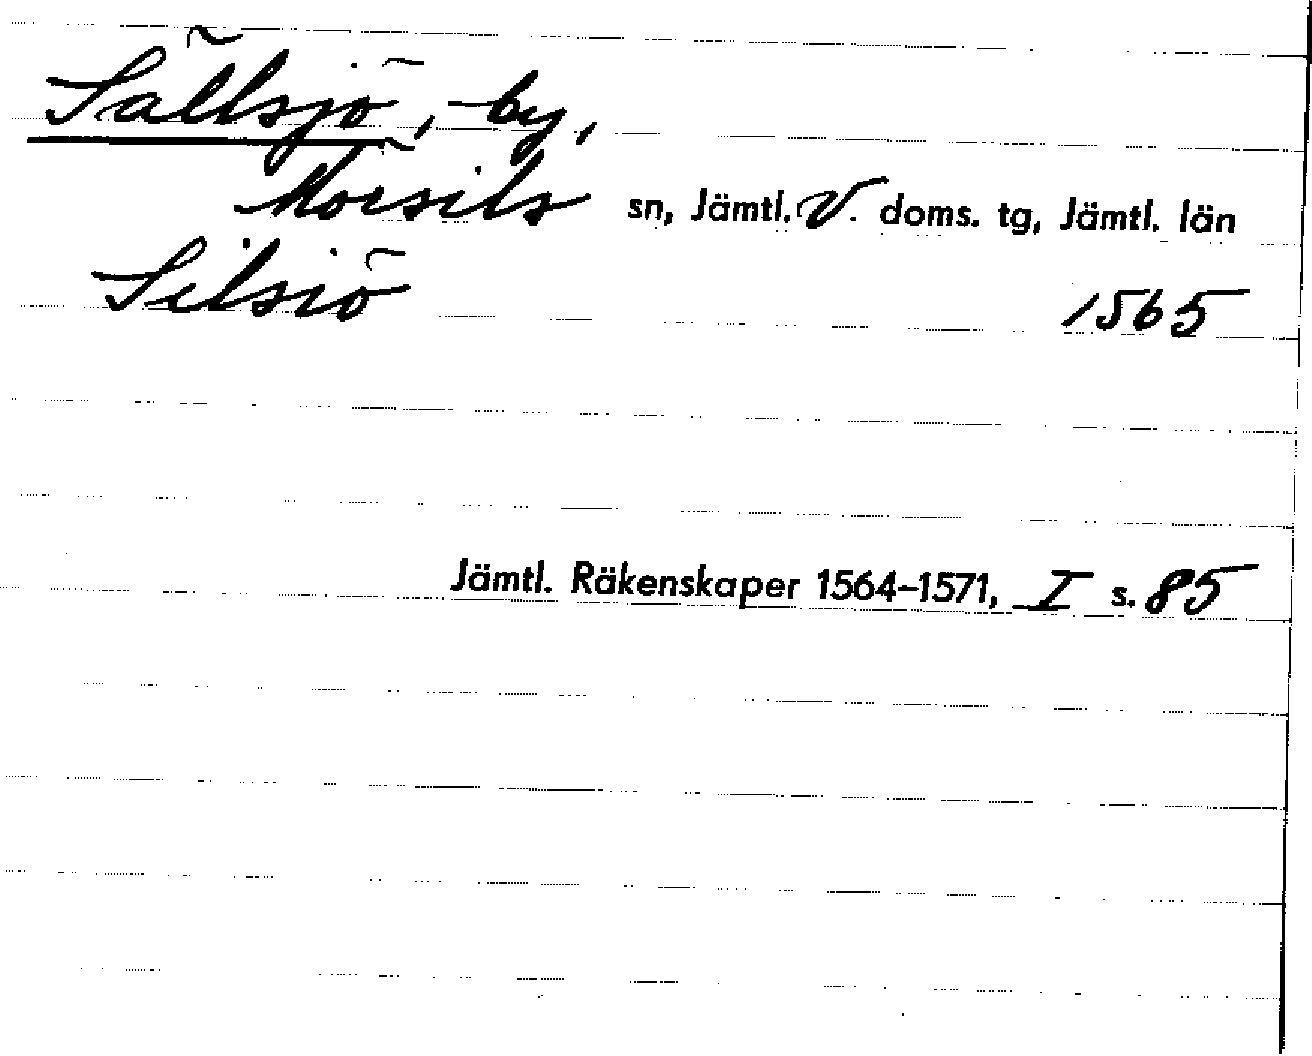 Sällsjö, by,
Mörsils sn, Jämtl. V. doms. tg, Jämtl. län
Silsiö 1565
Jämtl. Räkenskaper 1564–1571, I s. 85